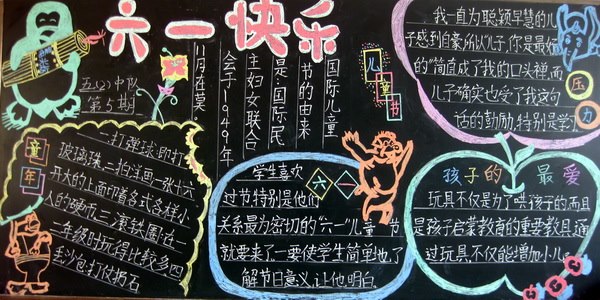 六一快乐
五(2)中队
第5期
国际儿童
节的由来
是国际民
主妇女联合
会于1949年
11月在莫
儿童节
我一直为聪颖早慧的儿
子感到自豪,所以"儿子,你是最
的"简直成了我的口头禅,而
儿子确实也受了我这句
话的鼓励,特别是学
压力
童年
一打弹球 即打
玻璃珠 二拍洋画一张十六
开大的上面印着各式各样小
人的硬纸 三滚铁圈 在一
二年级时玩得比较多四
丢沙包 打仗 扔石
学生喜欢
过节特别是他们
关系最为密切的"六一"儿童 节
就要来了一要使学生简单地了
解节日意义让他明白
六一
孩子的最爱
玩具不仅是为了哄孩子的而且
是孩子启蒙教育的重要教具通
过玩具不仅能增加小儿